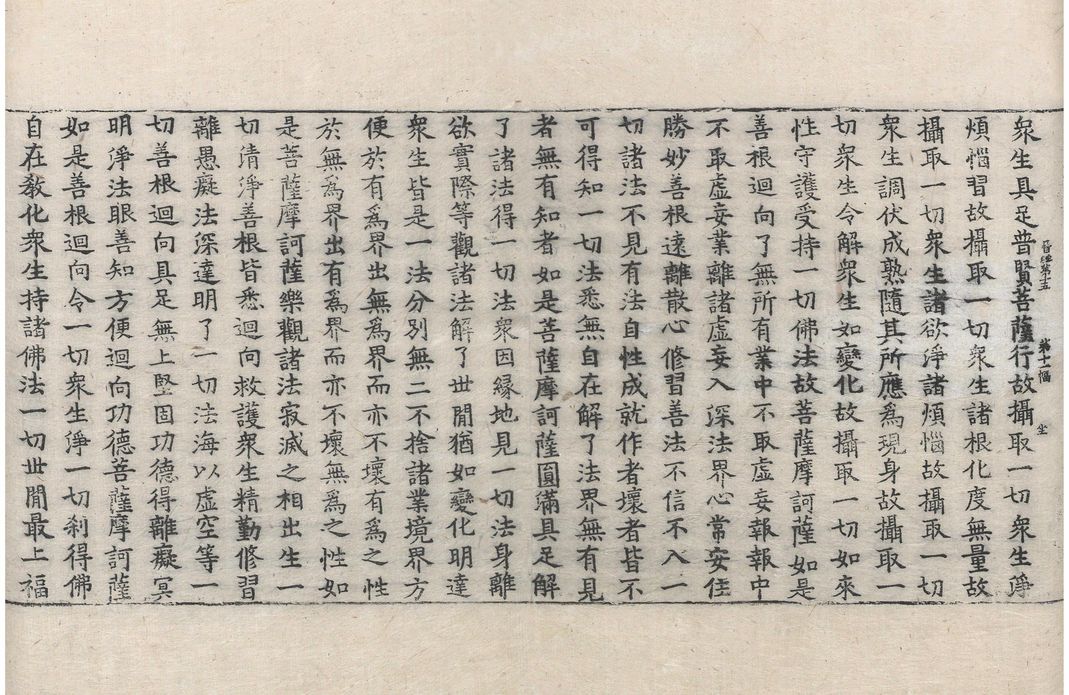 衆生具足普賢菩薩行故攝取一切衆生淨
晉經第十五 第十一幅 坐
煩惱習故攝取一切衆生諸根化度無量故
攝取一切衆生諸欲淨諸煩惱故攝取一切
衆生調伏成熟隨其所應爲現身故攝取一
切衆生令解衆生如變化故攝取一切如來
性守護受持一切佛法故菩薩摩訶薩如是
善根迴向了無所有業中不取虛妄報報中
不取虛妄業離諸虛妄入深法界心常安住
勝妙善根遠離散心修習善法不信不入一
切諸法不見有法自性成就作者壞者皆不
可得知一切法悉無自在解了法界無有見
者無有知者如是菩薩摩訶薩圓滿具足解
了諸法得一切法衆因緣地見一切法身離
欲實際等觀諸法解了世間猶如變化明達
衆生皆是一法分別無二不捨諸業境界方
便於有爲界出無爲界而亦不壞有爲之性
於無爲界出有爲界而亦不壞無爲之性如
是菩薩摩訶薩樂觀諸法寂滅之相出生一
切清淨善根皆悉迴向救護衆生精勤修習
離愚癡法深達明了一切法海以虛空等一
切善根迴向具足無上堅固功德得離癡冥
明淨法眼善知方便迴向功德菩薩摩訶薩
如是善根迴向令一切衆生淨一切刹得佛
自在教化衆生持諸佛法一切世間最上福